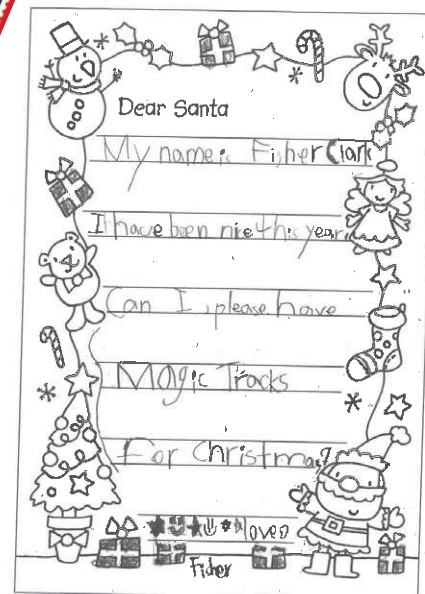 Dear Santa
My name is Fisher Clark
I have been nice this year.
Can I please have
Magic Tracks
For Christmas?
loves
Fisher